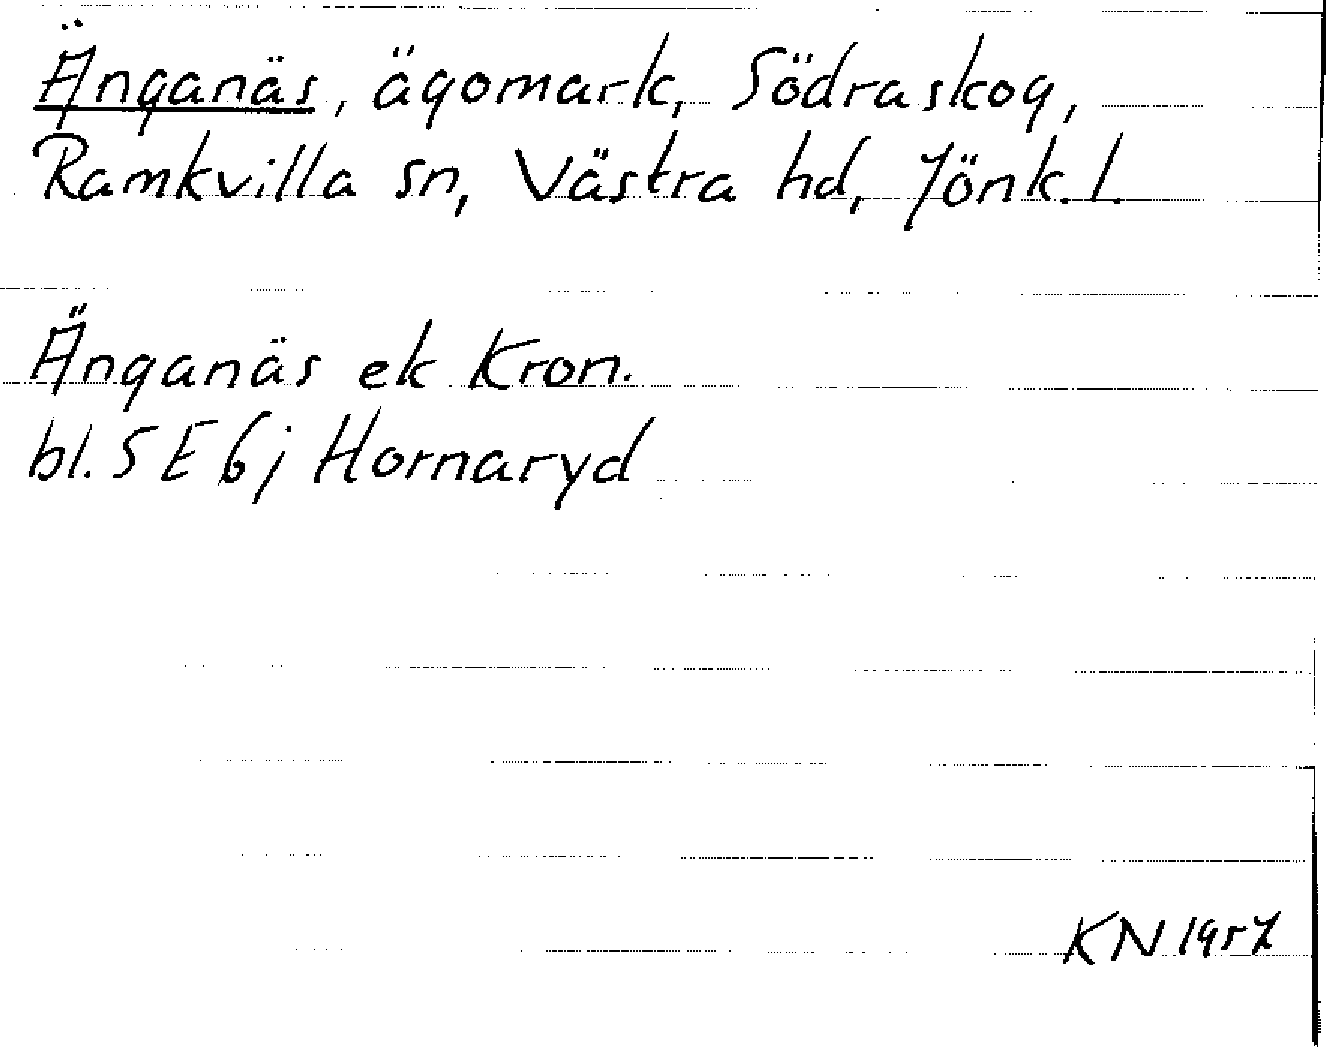 Änganäs, ägomark, Södraskog,
Ramkvilla sn, Västra hd, Jönk.l.
Änganäs ek Kron.
bl. 5E 6j Hornaryd
KN 1957